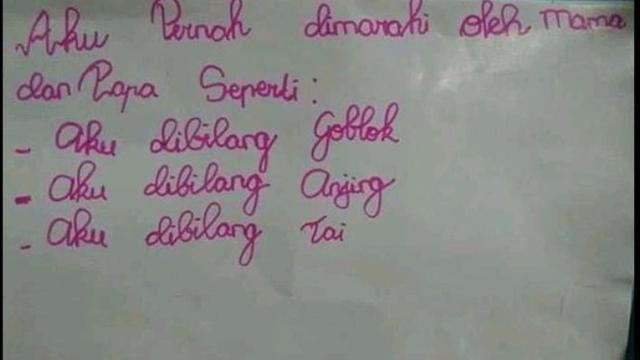 Aku Pernah dimarahi oleh mama
dan Papa Seperti :
- Aku dibilang Goblok
- Aku dibilang Anjing
- Aku dibilang Tai